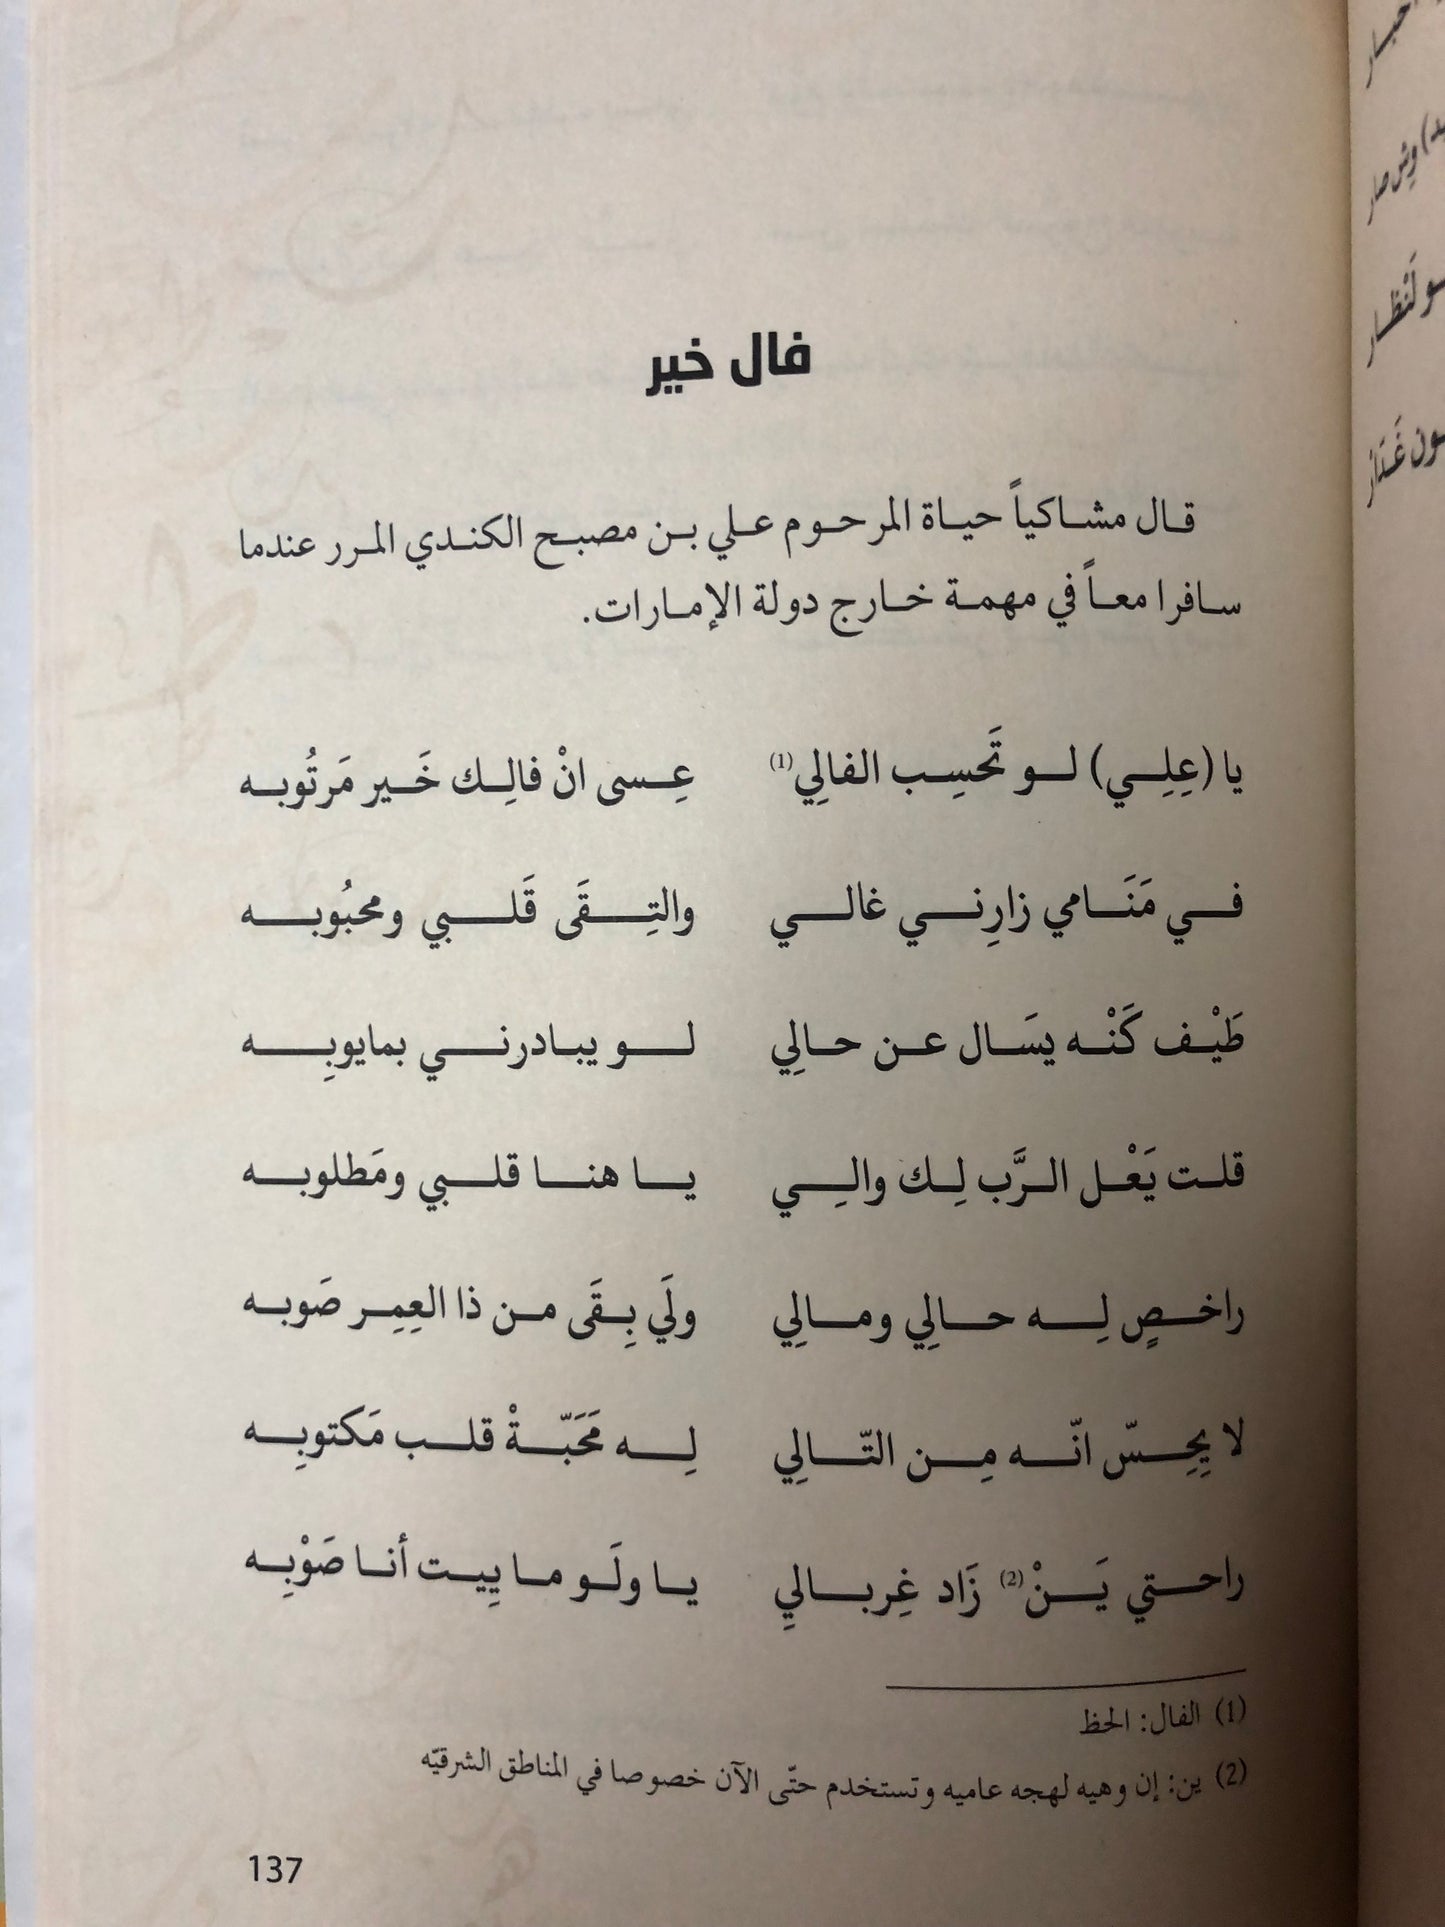 فال خير
قال مشاكياً حياة المرحوم علي بن مصبح الكندي المرر عندما
سافرا معاً في مهمة خارج دولة الإمارات.
يا (عِلِي) لو تَحسِب الفالِي(1) عِسى انْ فالِك خَير مَرتُوبه
في مَنَامي زارِني غالي والتِقَى قَلبي ومحبُوبه
طَيْف كَنْه يسَال عن حالِي لو يبادرني بمايوبِه
قلت يَعْل الرَّب لِك والِي يا هنا قلبي ومَطلوبه
راخصٍ لِه حالِي ومالِي ولَي بِقَى من ذا العِمِر صَوبه
لا يِحِسّ انّه مِن التّالِي لِه مَحَبّةْ قلب مَكتوبِه
راحتي يَنْ(2) زَاد غِربالِي يا ولَو ما يِيت أنا صَوْبِه
(1) الفال: الحظ
(2) ين: إن وهيه لهجه عاميه وتستخدم حتّى الآن خصوصا في المناطق الشرقيّه
137
وِش صار
لَنْظار
غَدَار